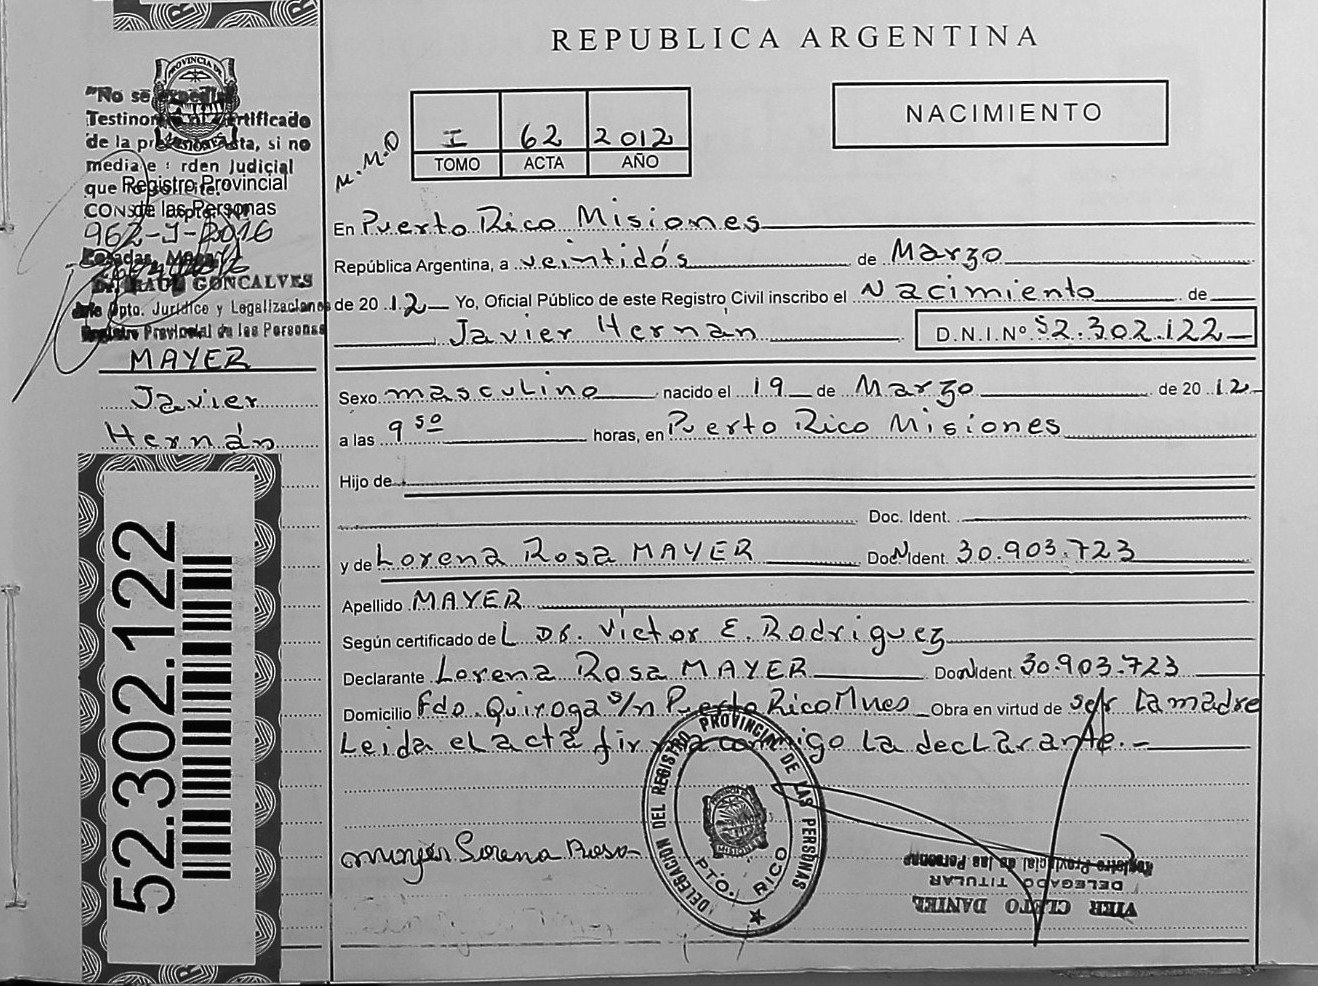 REPUBLICA ARGENTINA
NACIMIENTO
M.M.O
I 62 2012
TOMO ACTA AÑO
"No se expedirá
Testimonio ni Certificado
de la presente Acta, si no
media orden Judicial
que lo solicite."
Registro Provincial
de las Personas
962-J-2016
Posadas,
RAUL GONCALVES
Jefe Dpto. Jurídico y Legalizaciones
Registro Provincial de las Personas
MAYER
Javier
Hernán
52.302.122
En Puerto Rico Misiones
República Argentina, a veintidós de Marzo
de 2012 Yo, Oficial Público de este Registro Civil inscribo el Nacimiento de
Javier Hernán D.N.I.Nº 52.302.122
Sexo masculino nacido el 19 de Marzo de 2012
a las 9 50 horas, en Puerto Rico Misiones
Hijo de
Doc. Ident.
y de Lorena Rosa MAYER Doc. Ident. 30.903.723
Apellido MAYER
Según certificado del Dr. Victor E. Rodriguez
Declarante Lorena Rosa MAYER Doc. Ident. 30.903.723
Domicilio Fdo. Quiroga s/n Puerto Rico Mnes Obra en virtud de ser la madre
Leida el acta firma conmigo la declarante.-
Mayer Lorena Rosa
DELEGACION DEL REGISTRO PROVINCIAL DE LAS PERSONAS
PTO. RICO
Registro Provincial de las Personas
DELEGADO TITULAR
VIER CLETO DANIEL